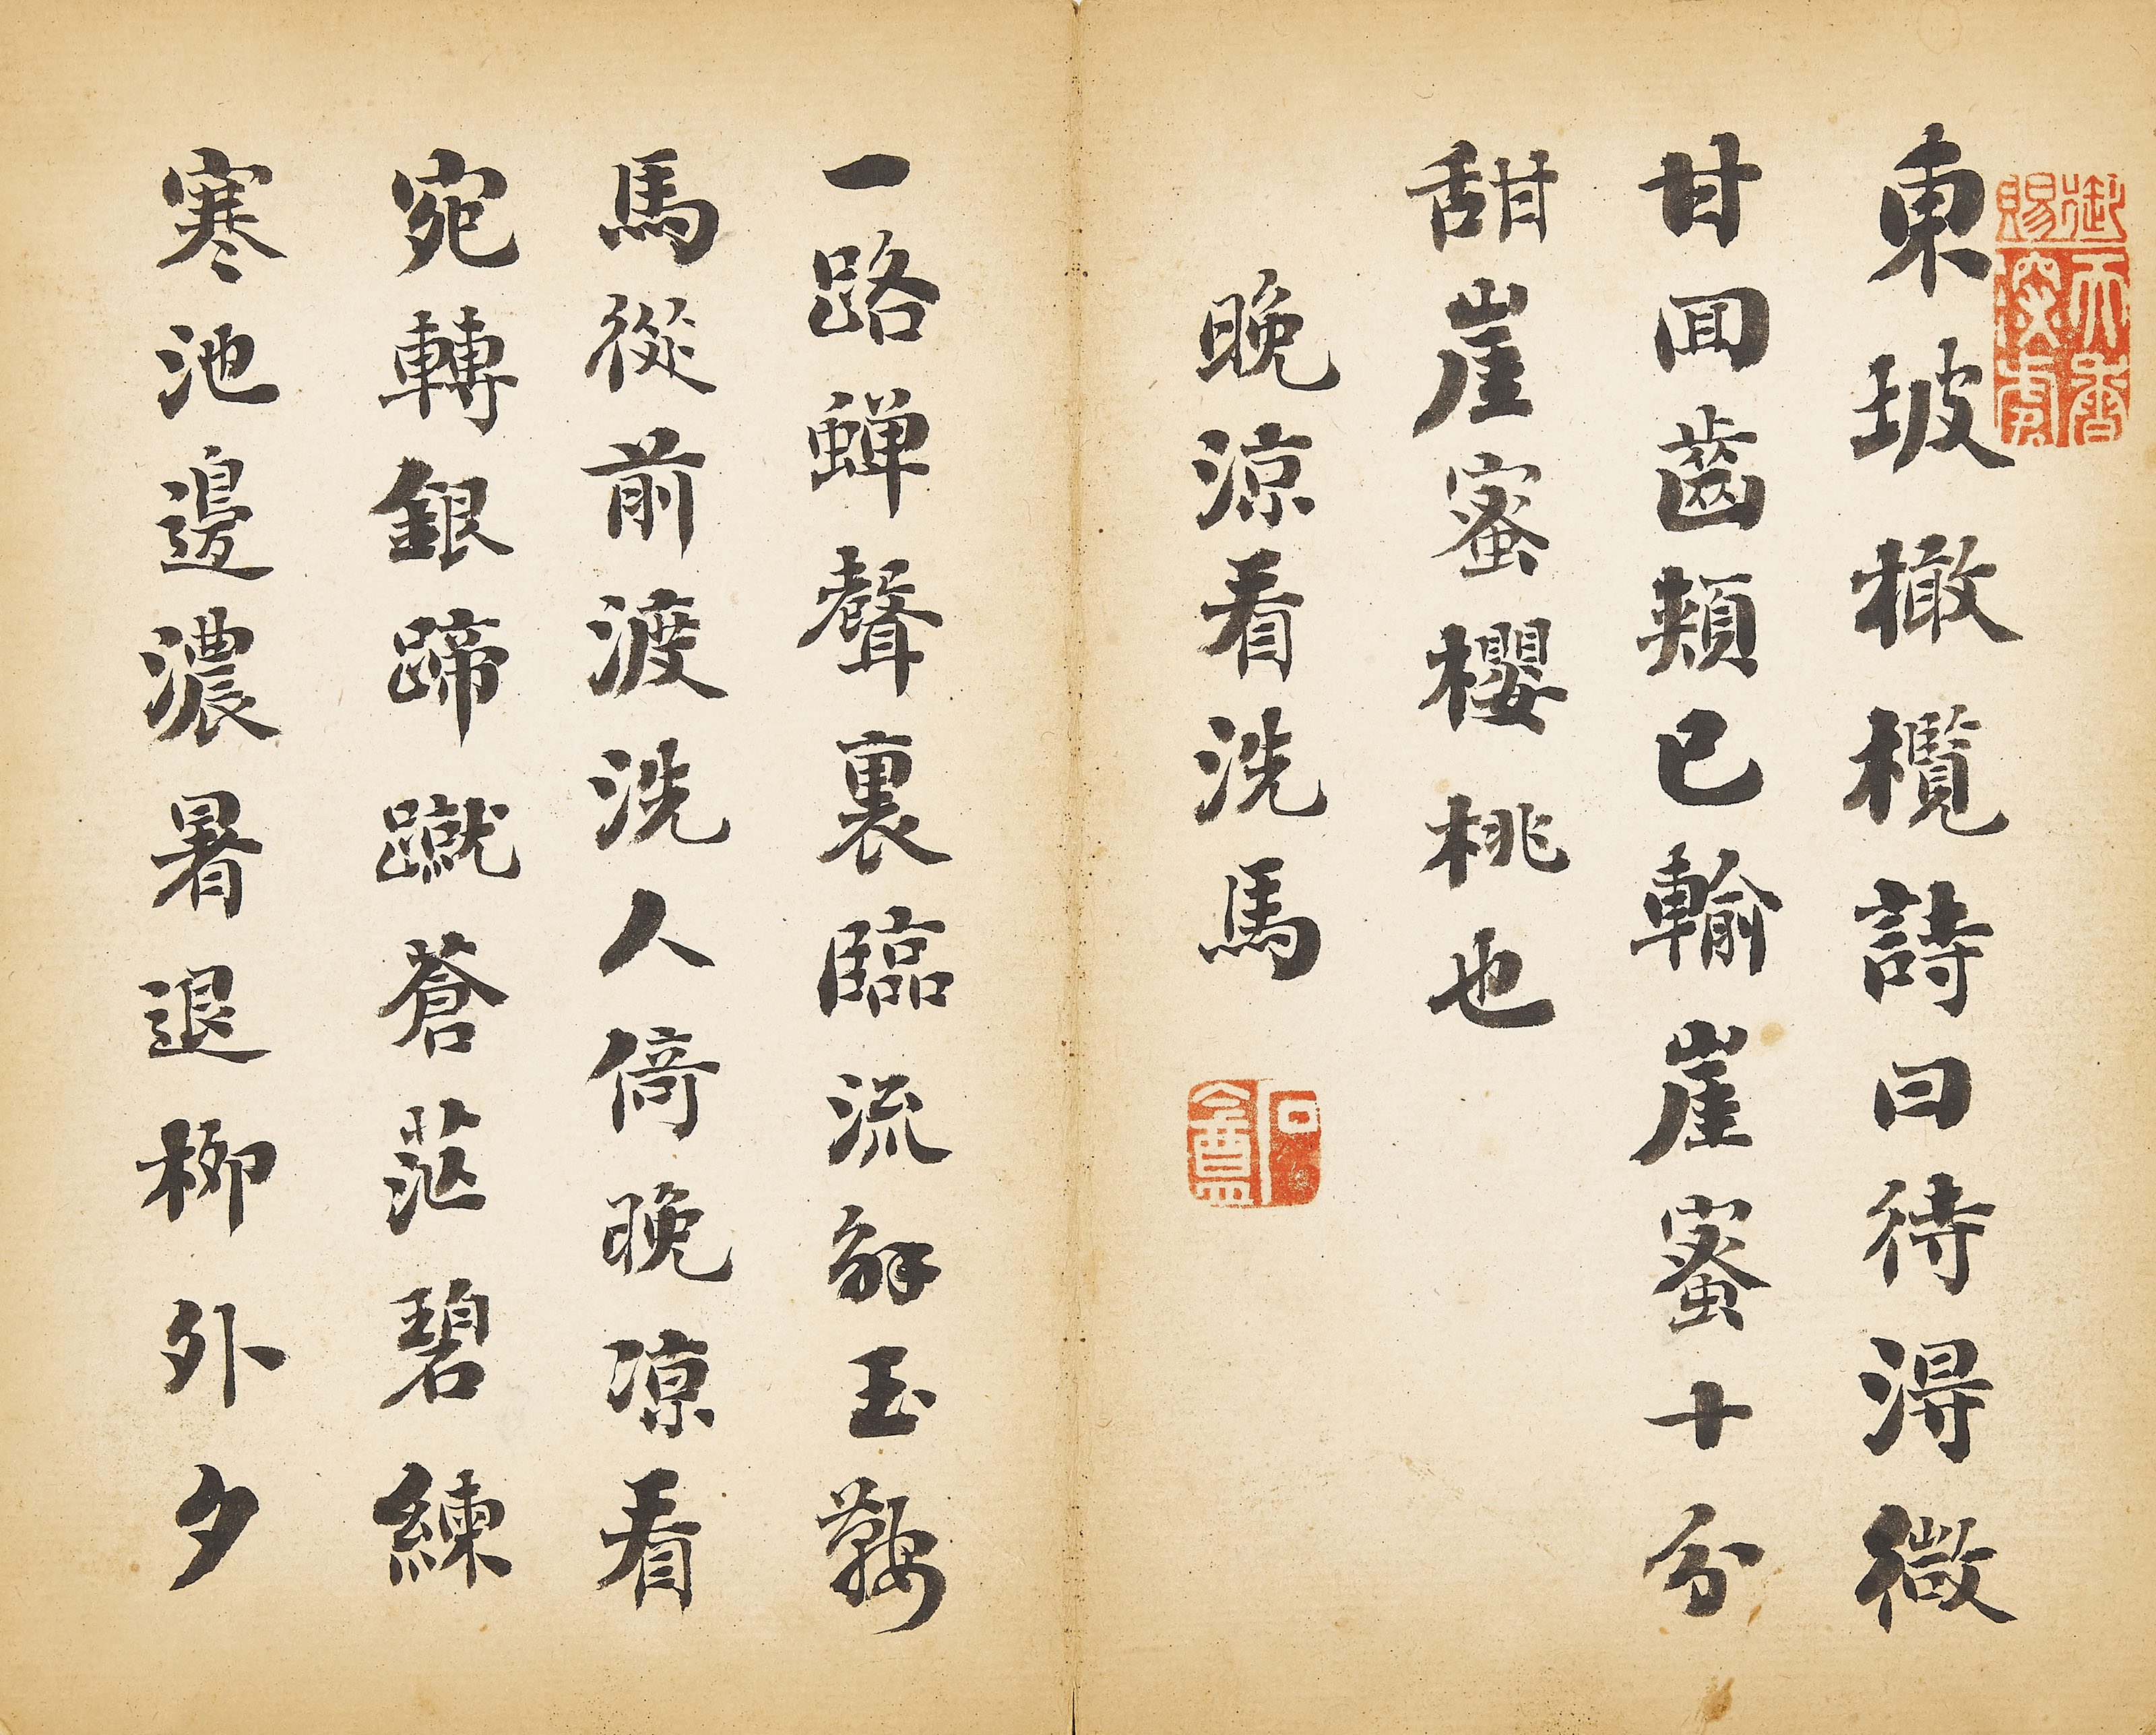 東坡橄欖詩曰待得微
甘回齒頰已輸崖蜜十分
甜崖蜜櫻桃也
晚涼看洗馬
一路蟬聲裏臨流解玉鞍
馬從前渡洗人倚晚涼看
宛轉銀蹄蹴蒼茫碧練
寒池邊濃暑退柳外夕